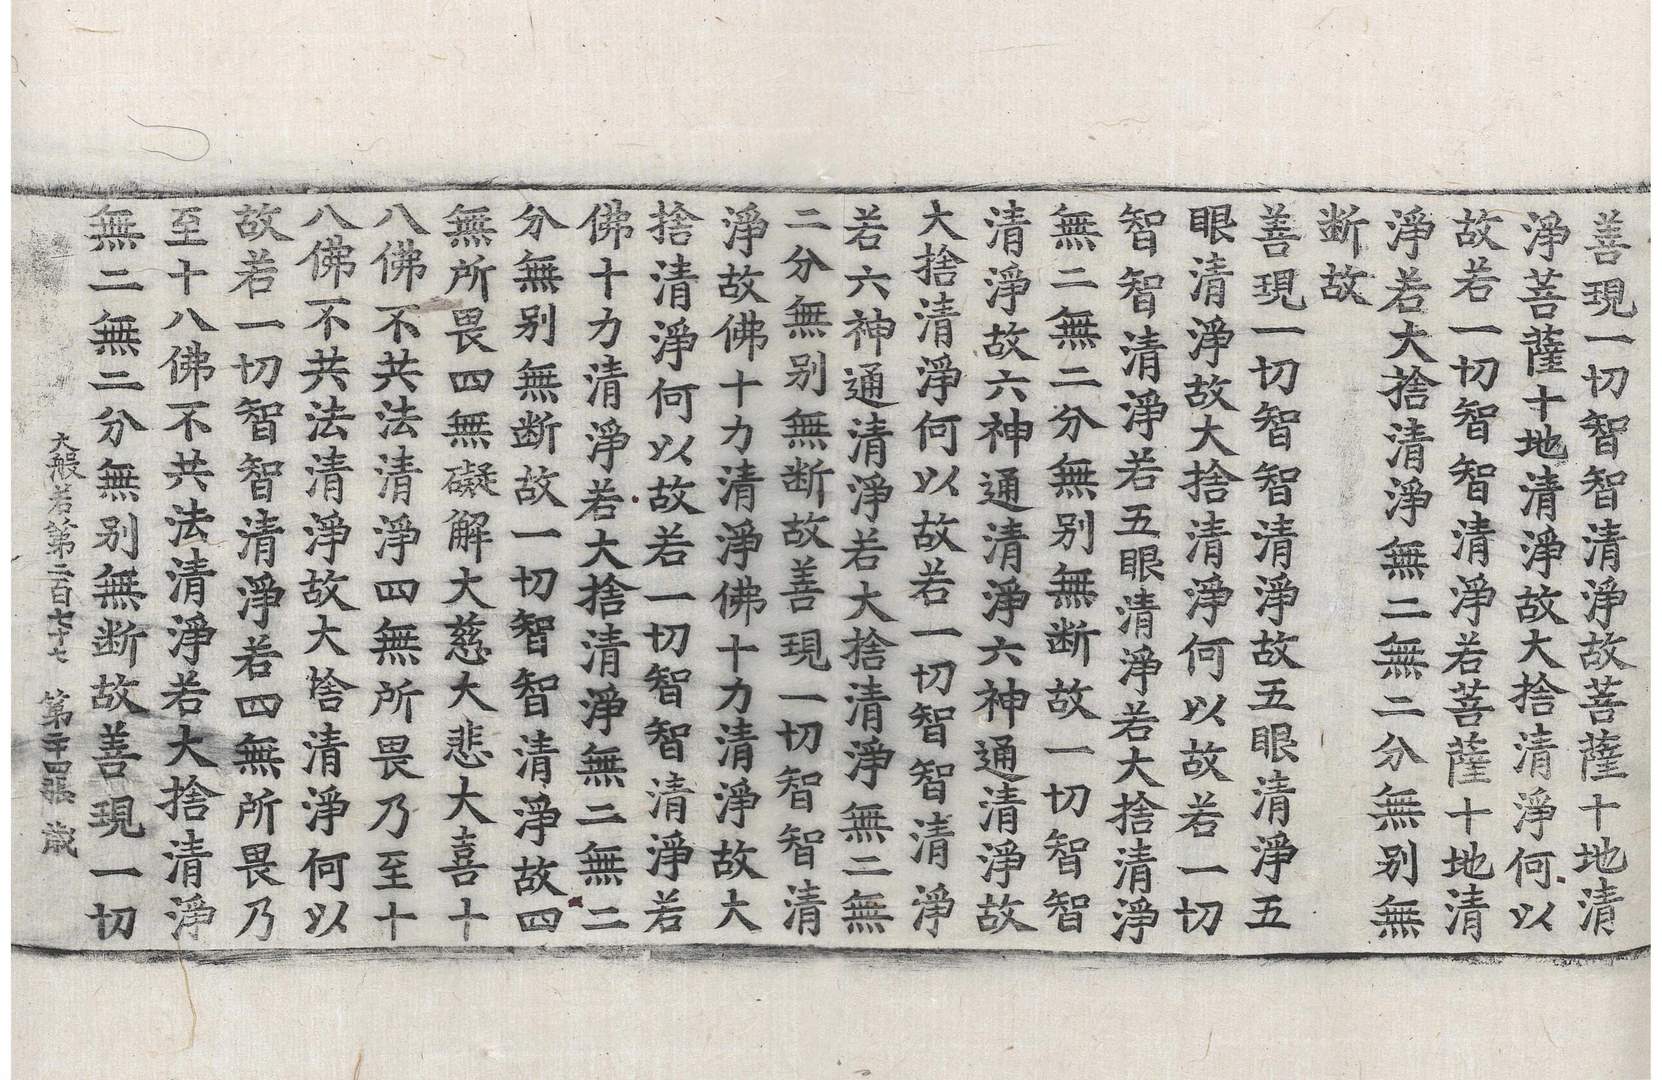 善現一切智智清淨故菩薩十地清
淨菩薩十地清淨故大捨清淨何以
故若一切智智清淨若菩薩十地清
淨若大捨清淨無二無二分無别無
断故
善現一切智智清淨故五眼清淨五
眼清淨故大捨清淨何以故若一切
智智清淨若五眼清淨若大捨清淨
無二無二分無别無断故一切智智
清淨故六神通清淨六神通清淨故
大捨清淨何以故若一切智智清淨
若六神通清淨若大捨清淨無二無
二分無别無断故善現一切智智清
淨故佛十力清淨佛十力清淨故大
捨清淨何以故若一切智智清淨若
佛十力清淨若大捨清淨無二無二
分無别無断故一切智智清淨故四
無所畏四無礙解大慈大悲大喜十
八佛不共法清淨四無所畏乃至十
八佛不共法清淨故大捨清淨何以
故若一切智智清淨若四無所畏乃
至十八佛不共法清淨若大捨清淨
無二無二分無别無断故善現一切
大般若第二百七十七 第二十四張 歲